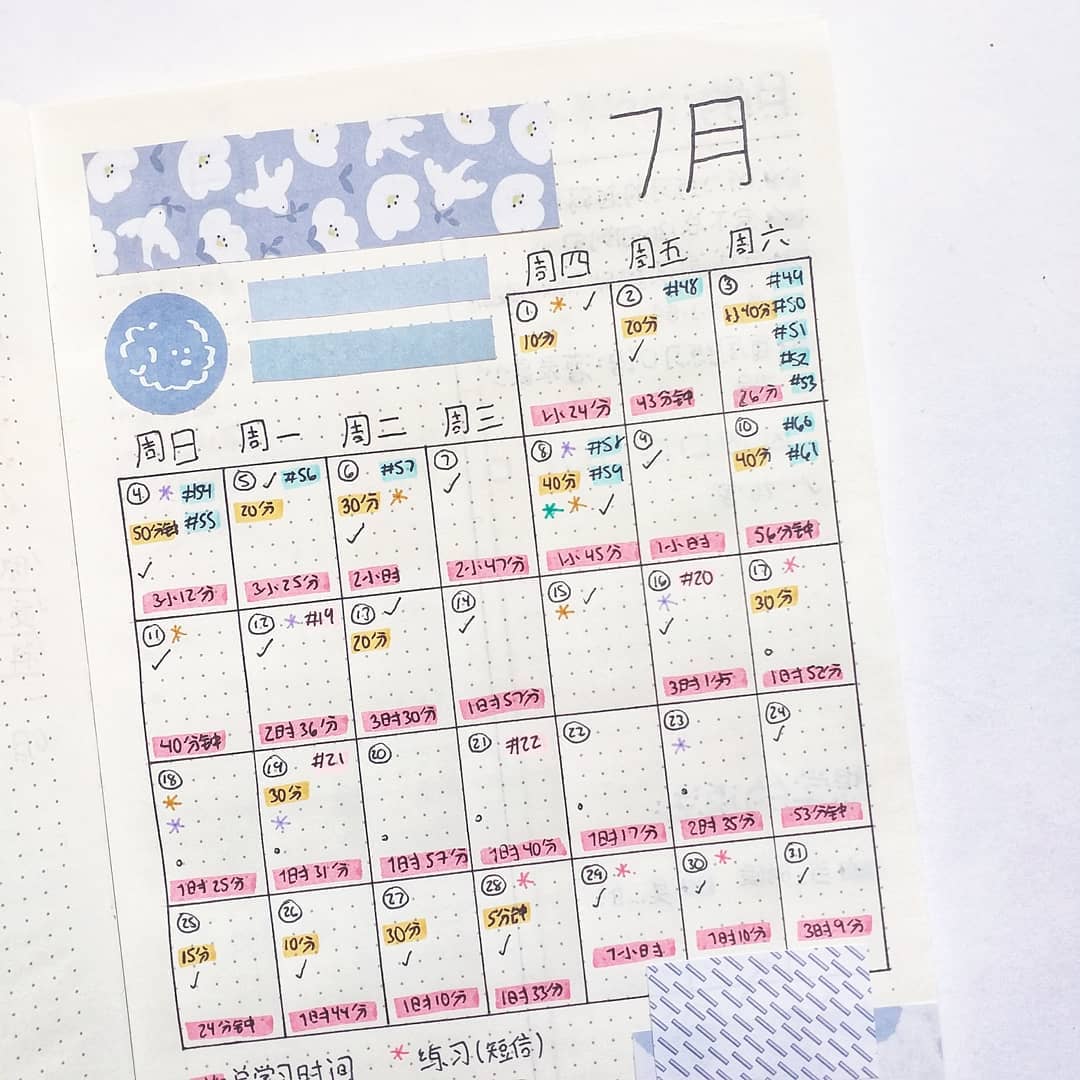 7月
周四 周五 周六
① * ✓
10分
1小24分
② #48
20分
✓
43分钟
③ #49
40分 #50
#51
#52
#53
26分
周日 周一 周二 周三
④ * #54
50分钟 #55
✓
3小12分
⑤ ✓ #56
20分
3小25分
⑥ #57
30分 *
✓
2小时
⑦
✓
2小47分
⑧ * #58
40分 #59
* * ✓
1小45分
⑨
✓
1小时
⑩ #60
40分 #61
56分钟
⑪ *
✓
40分钟
⑫ * #19
✓
2时36分
⑬ ✓
20分
3时30分
⑭
✓
1时57分
⑮ ✓
*
⑯ #20
*
✓
⑰ *
30分
1时52分
⑱
*
*
1时25分
⑲ #21
30分
*
1时31分
⑳
1时57分
㉑ #22
1时40分
㉒
1时17分
㉓
*
2时35分
㉔
✓
53分钟
㉕
15分
✓
24分钟
㉖
10分
✓
1时44分
㉗
30分
✓
1时10分
㉘ *
5分钟
✓
1时33分
㉙ *
✓
1小时
㉚ *
✓
1时10分
㉛
✓
3时9分
总学习时间 * 练习(短信)